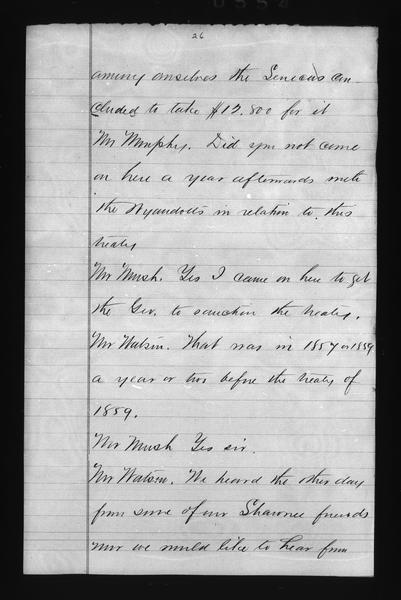 26
among ourselves the Senecas con-
cluded to take $12.800 for it
Mr Murphy. Did you not come
on here a year afterwards with
the Wyandotts in relation to this
treaty
Mr Mush. Yes I came on here to get
the Gov. to sanction the treaty.
Mr Watson. That was in 1857 or 1859
a year or two before the treaty of
1859.
Mr Mush Yes sir.
Mr Watson. We heard the other day
from some of our Shawnee friends
now we would like to hear from